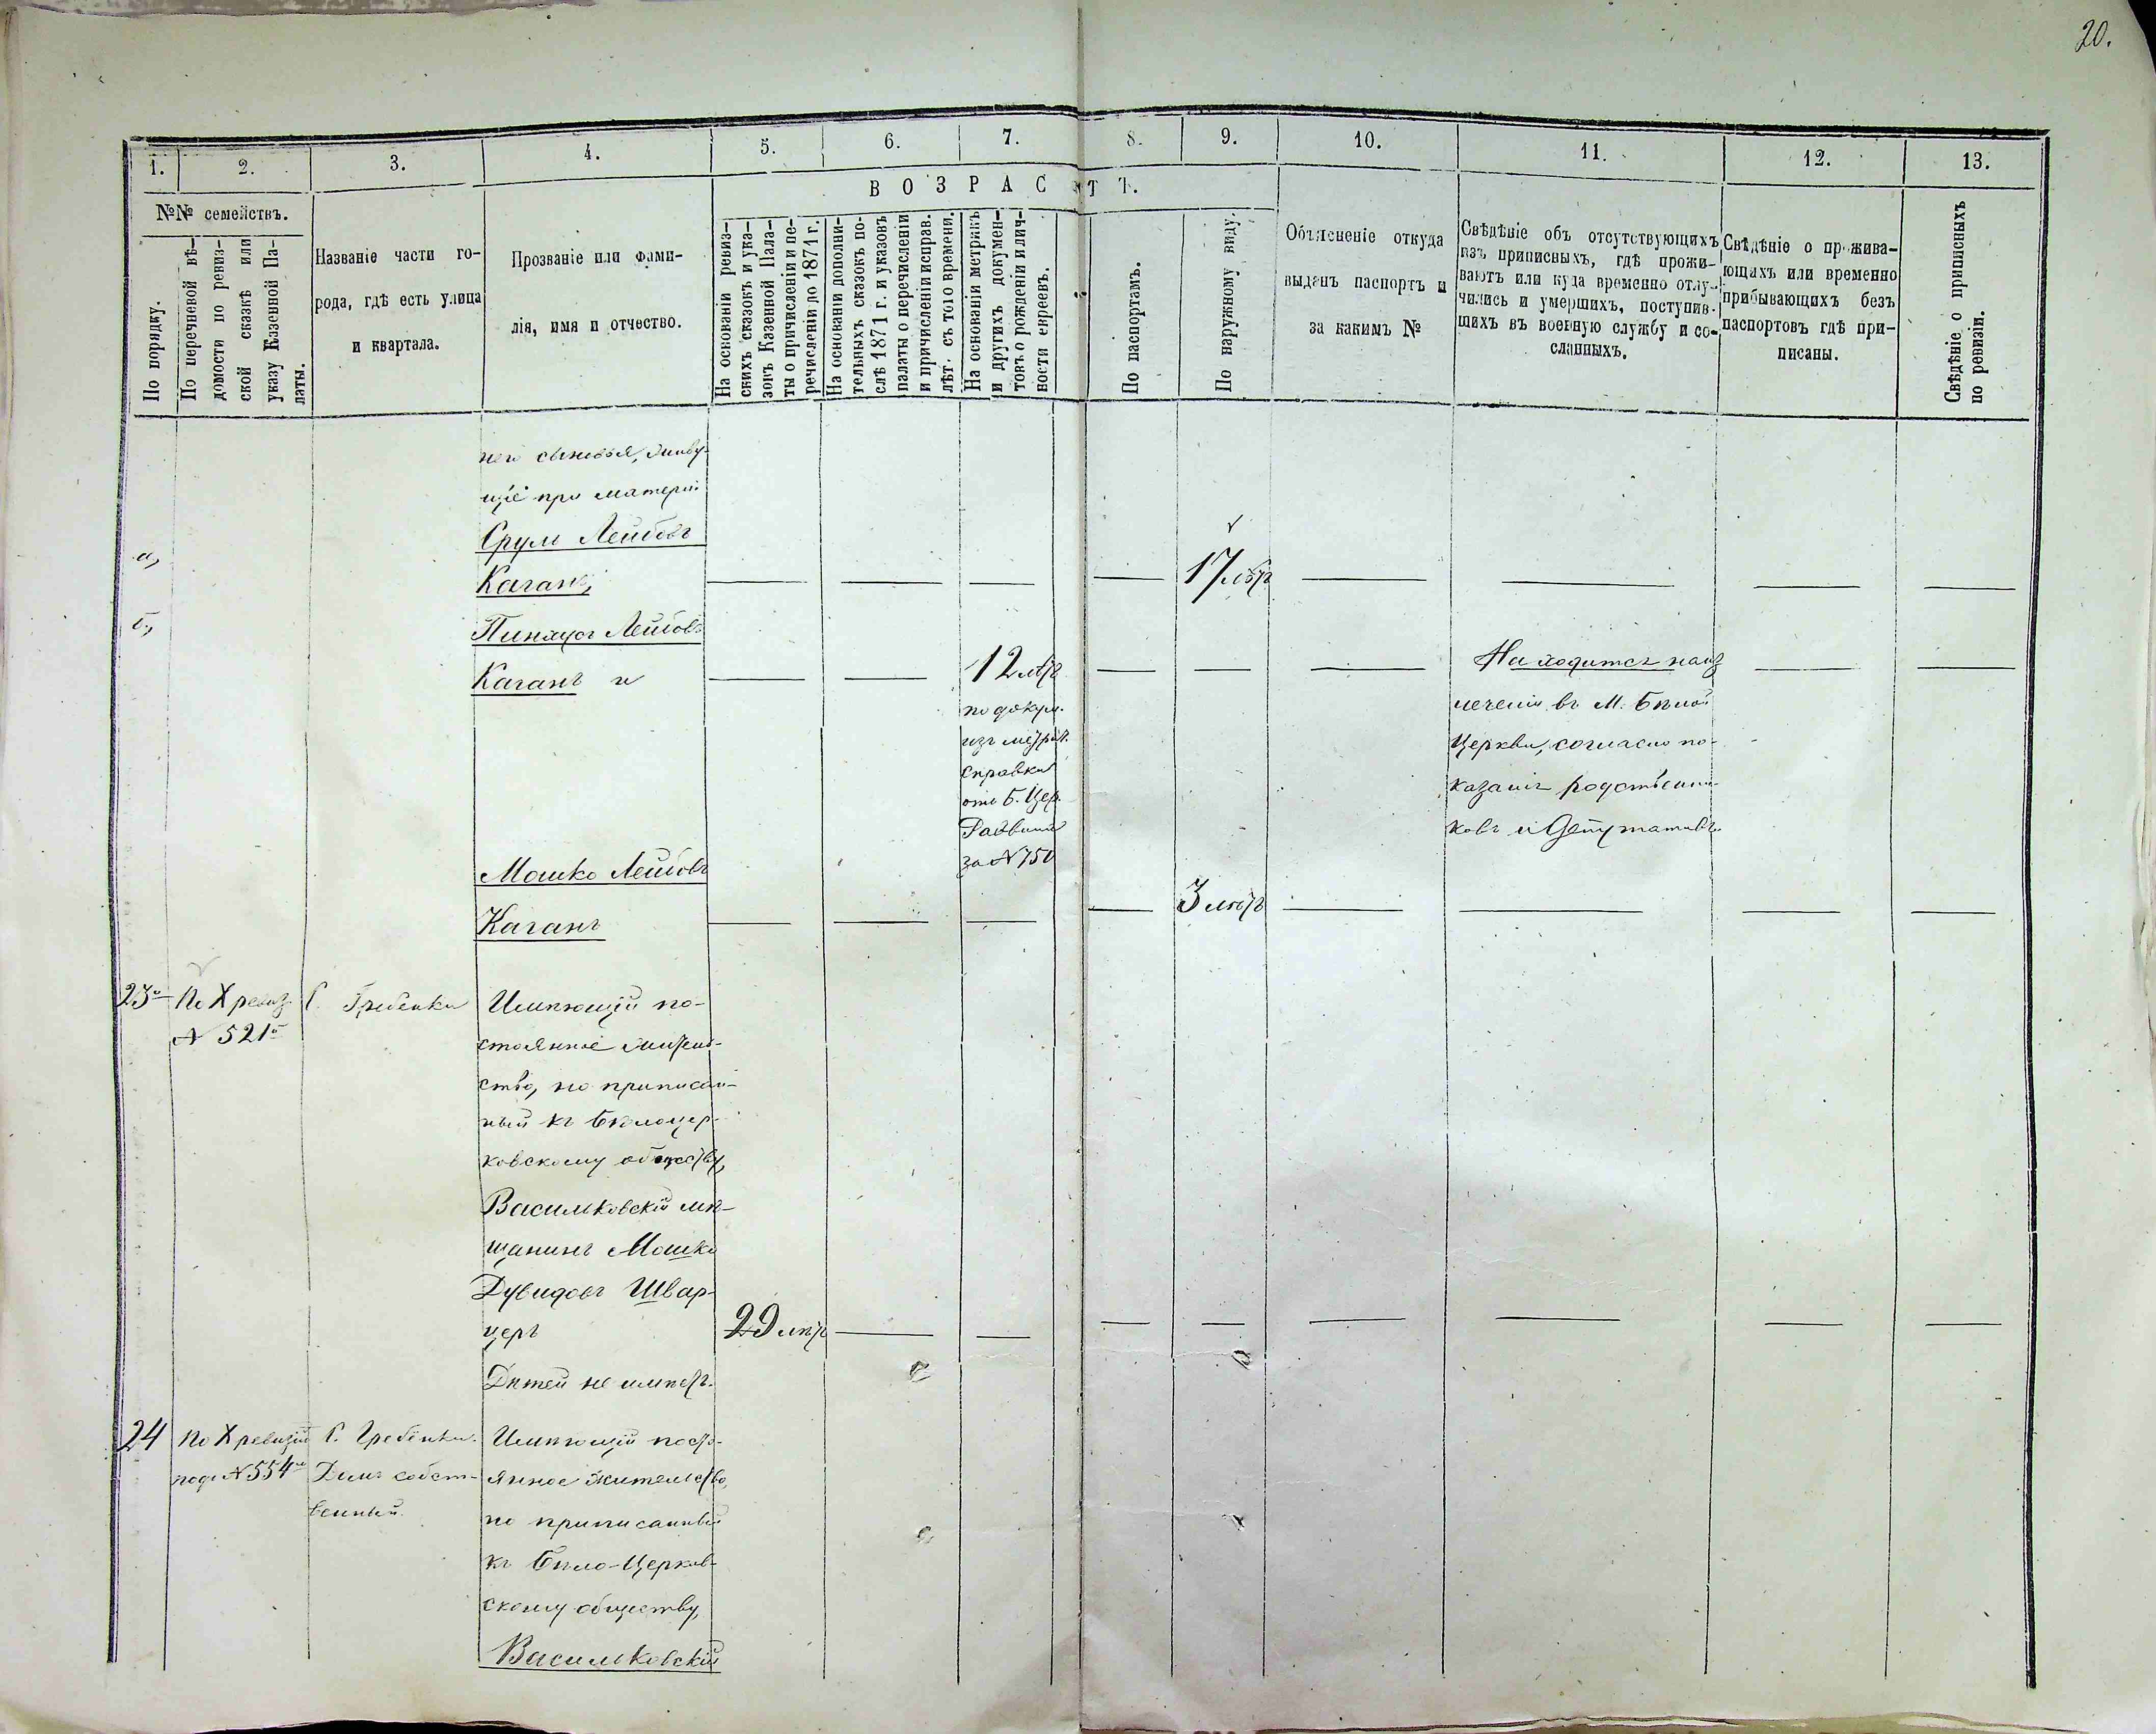 20.
1.
2.
3.
4.
5.
6.
7.
8.
9.
10.
11.
12.
13.
ВОЗРАСТЪ.
№№ семействъ.
По порядку.
По перечневой вѣ-
домости по ревиз-
ской сказкѣ или
указу Казенной Па-
латы.
Названіе части го-
рода, гдѣ есть улица
и квартала.
Прозваніе или фами-
лія, имя и отчество.
На основаніи ревиз-
скихъ сказокъ и ука-
зовъ Казенной Пала-
ты о причисленіи и пе-
речисленіи до 1871 г.
На основаніи дополни-
тельныхъ сказокъ по-
слѣ 1871 г. и указовъ
палаты о перечисленіи
и причисленіи исправ.
лѣт. съ того времени.
На основаніи метрикъ
и другихъ докумен-
товъ о рожденіи и лич-
ности евреевъ.
По паспортамъ.
По наружному виду.
Объясненіе откуда
выданъ паспортъ и
за какимъ №
Свѣдѣніе объ отсутствующихъ
изъ приписныхъ, гдѣ прожи-
ваютъ или куда временно отлу-
чились и умершихъ, поступив-
шихъ въ военную службу и со-
сланныхъ.
Свѣдѣніе о прожива-
ющихъ или временно
прибывающихъ безъ
паспортовъ гдѣ при-
писаны.
Свѣдѣніе о приписныхъ
по ревизіи.
него сыновья, живу-
щіе при матери
а,
Срулъ Лейбовъ
Каганъ,
17 лѣтъ
б,
Пинхусъ Лейбовъ
Каганъ и
12 лѣтъ
по докум.
изъ метрич.
справки
отъ Б. Цер.
Раввина
за № 750
Находится на из
леченіи въ М. Бѣлой
Церкви, согласно по-
казанія родственни-
ковъ и Депутатовъ.
Мошко Лейбовъ
Каганъ
3 лѣтъ
23й
По X ревиз.
№ 521й
С. Гребенки
Имѣющій по-
стоянное житель-
ство, но приписан-
ный къ Бѣлоцер-
ковскому обществу,
Васильковскій мѣ-
щанинъ Мошко
Дувидовъ Швар-
церъ
29 лѣтъ
Дѣтей не имѣетъ.
24
По X ревизіи
подъ № 554й
С. Гребенки.
Домъ собст-
венный.
Имѣющій посто-
янное жительство,
но приписанный
къ Бѣло-Церков-
скому обществу,
Васильковскій